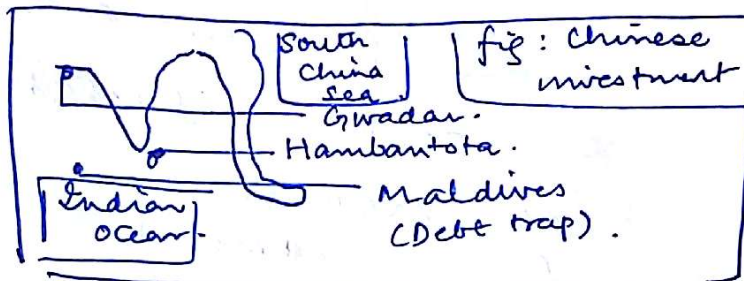 South
China
Sea
fig : Chinese
investment
Gwadar.
Hambantota.
Maldives
(Debt trap).
Indian
Ocean.